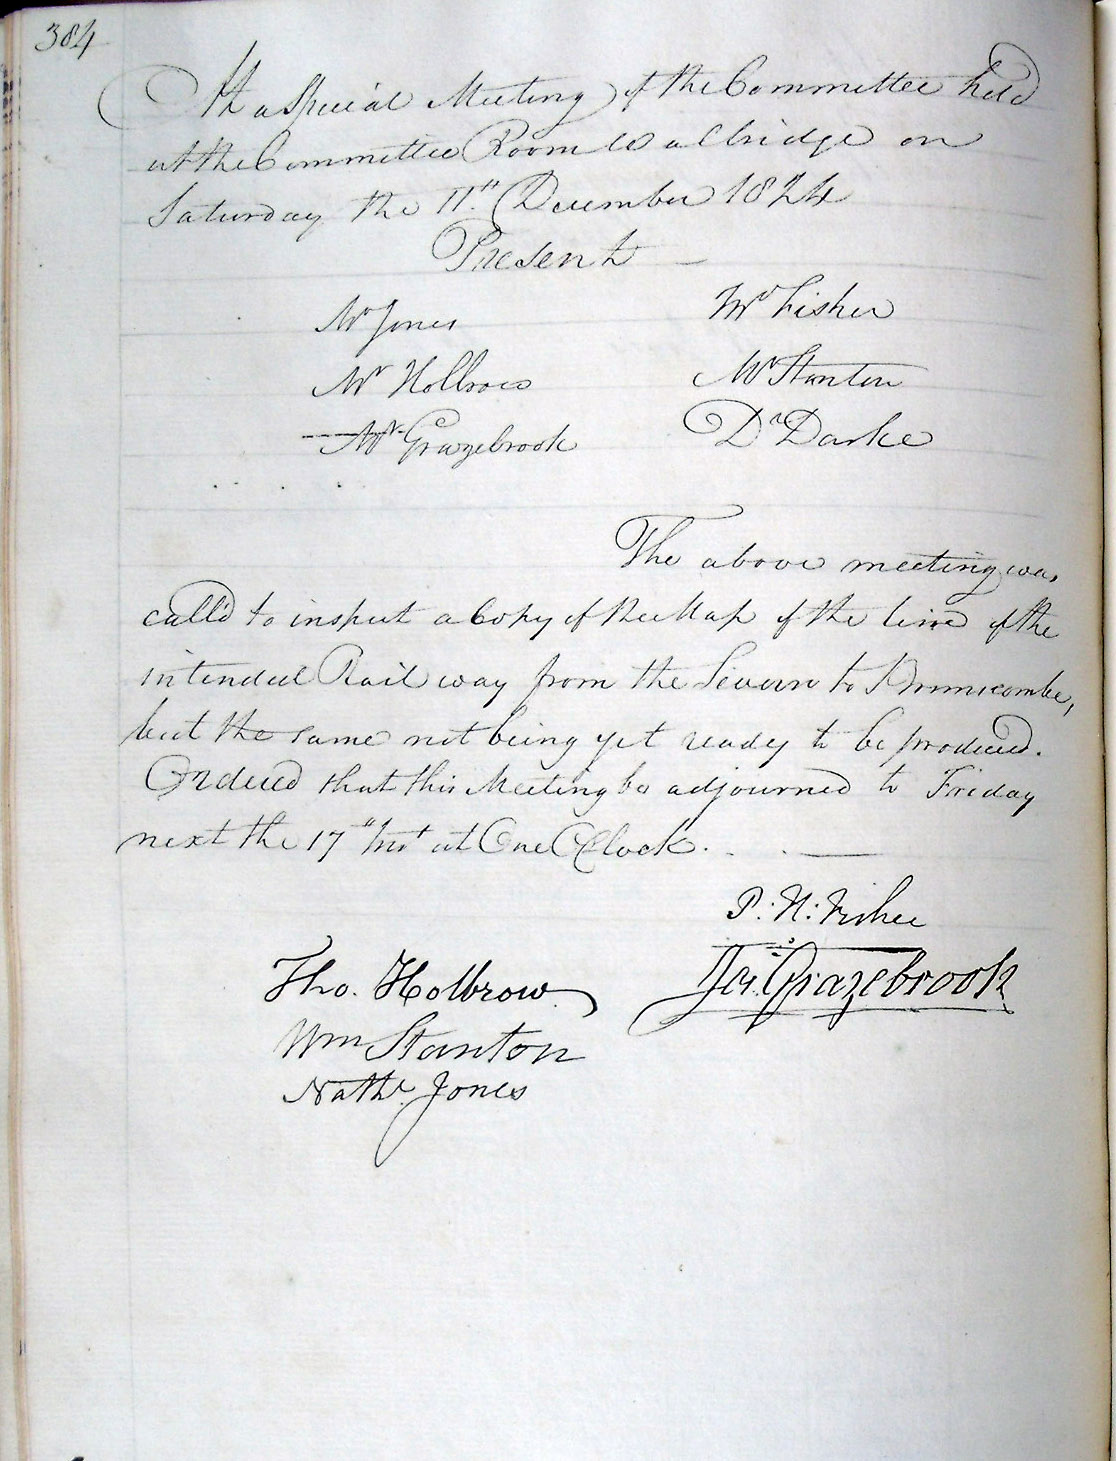 384
At a Special Meeting of the Committee held
at the Committee Room Wallbridge on
Saturday the 11th December 1824
Present —
Mr Jones Mr Fisher
Mr Holbrow Mr Stanton
Mr Grazebrook Dr Darke
The above meeting was
call'd to inspect a Copy of the Map of the line of the
intended Rail way from the Severn to Brimscombe,
but the same not being yet ready to be produced.
Ordered that this Meeting be adjourned to Friday
next the 17th Inst at One O'Clock. . . —
P: H: Fisher
Tho. Holbrow Grazebrook
Wm Stanton
Nathl. Jones